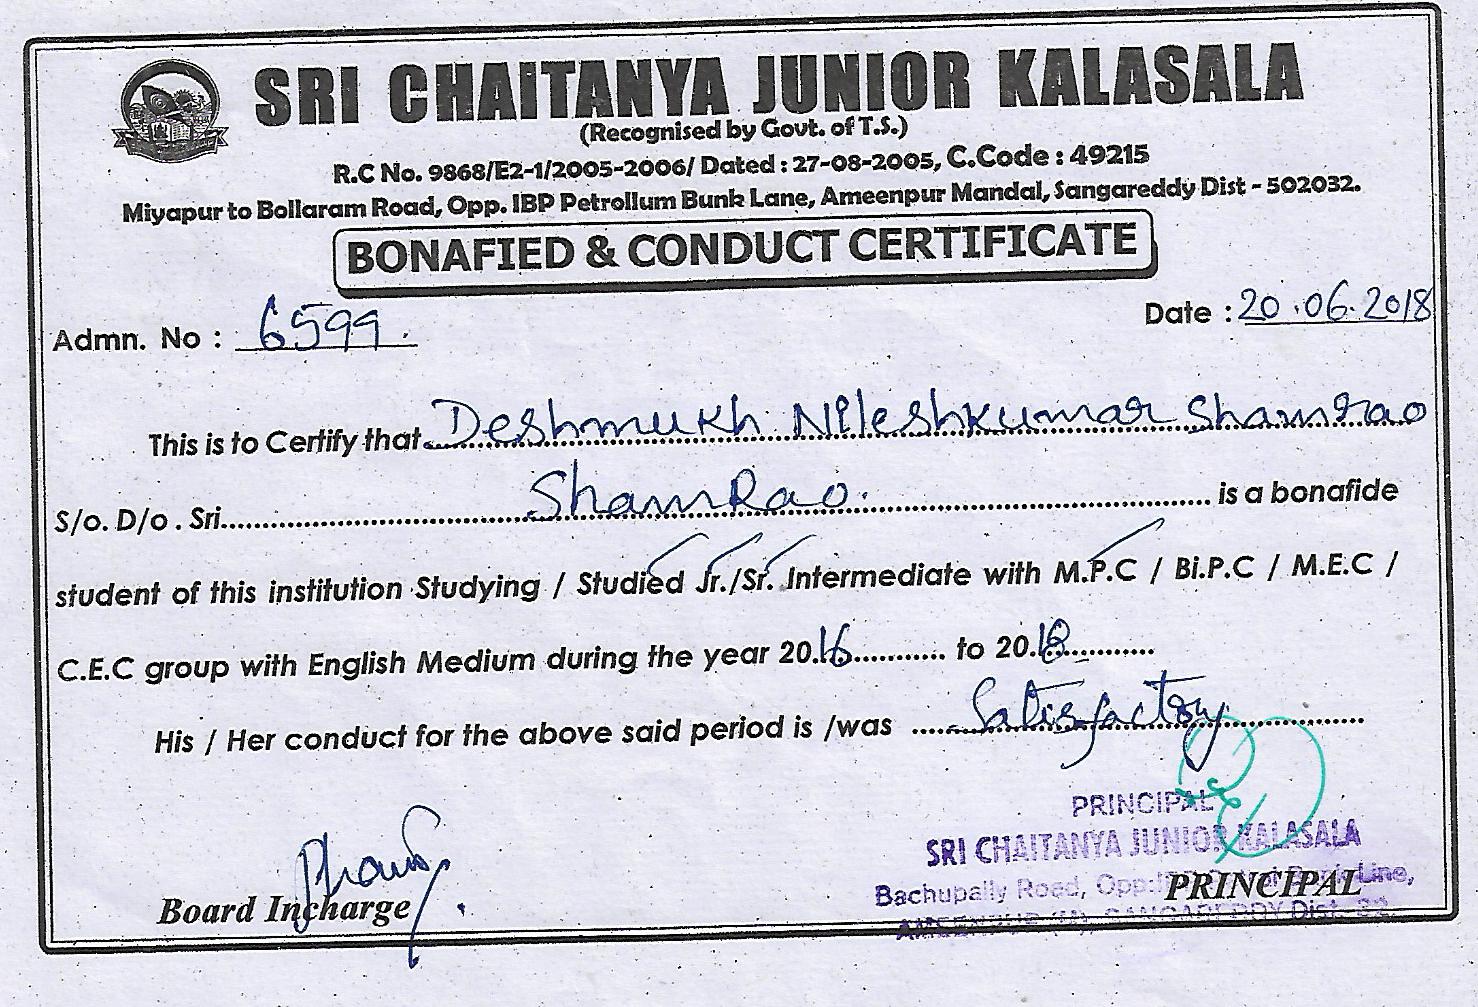 SRI CHAITANYA JUNIOR KALASALA
(Recognised by Govt. of T.S.)
R.C No. 9868/E2-1/2005-2006/ Dated : 27-08-2005, C.Code : 49215
Miyapur to Bollaram Road, Opp. IBP Petrollum Bunk Lane, Ameenpur Mandal, Sangareddy Dist - 502032.
BONAFIED & CONDUCT CERTIFICATE
Admn. No : 6599. Date : 20.06.2018
This is to Certify that Deshmukh Nileshkumar Shamrao
S/o. D/o . Sri ShamRao. is a bonafide
student of this institution Studying / Studied Jr./Sr. Intermediate with M.P.C / Bi.P.C / M.E.C /
C.E.C group with English Medium during the year 2016 to 2018
His / Her conduct for the above said period is /was Satisfactory
PRINCIPAL
SRI CHAITANYA JUNIOR KALASALA
Bachupally Road, Opp: Line,
Board Incharge PRINCIPAL